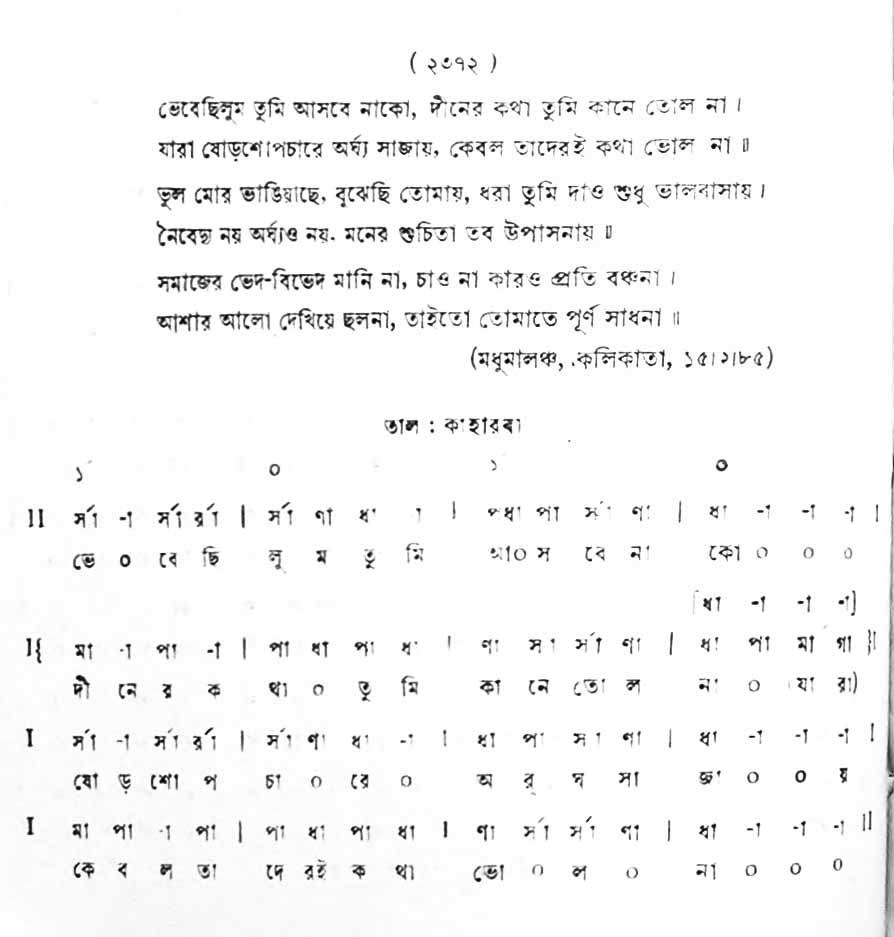 ( ২৩৭২ )
ভেবেছিলুম তুমি আসবে নাকো, দীনের কথা তুমি কানে তোল না ।
যারা ষোড়শোপচারে অর্ঘ্য সাজায়, কেবল তাদেরই কথা ভোল না ॥
ভুল মোর ভাঙিয়াছে, বুঝেছি তোমায়, ধরা তুমি দাও শুধু ভালবাসায় ।
নৈবেদ্য নয় অর্ঘ্যও নয়. মনের শুচিতা তব উপাসনায় ॥
সমাজের ভেদ-বিভেদ মানি না, চাও না কারও প্রতি বঞ্চনা ।
আশার আলো দেখিয়ে ছলনা, তাইতো তোমাতে পূর্ণ সাধনা ॥
(মধুমালঞ্চ, কলিকাতা, ১৫।২।৮৫)
তাল : কাহারবা
১´ ০ ১ ০
II র্সা -া র্সা র্রা | র্সা ণা ধা া | পধা পা র্সা ণা | ধা -া -া -া |
ভে ০ বে ছি লু ম তু মি আ০ স বে না কো ০ ০ ০
[ধা -া -া -া]
I{ মা -া পা -া | পা ধা পা ধা | ণা র্সা র্সা ণা | ধা পা মা গা }I
দী নে র ক থা ০ তু মি কা নে তো ল না ০ (যা রা)
I র্সা -া র্সা র্রা | র্সা ণা ধা -া | ধা পা র্সা ণা | ধা -া -া -া I
ষো ড় শো প চা ০ রে ০ অ র্ ঘ সা জা ০ ০ য়
I মা পা -া পা | পা ধা পা ধা I ণা র্সা র্সা ণা | ধা -া -া -া II
কে ব ল তা দে রই ক থা ভো ০ ল ০ না ০ ০ ০